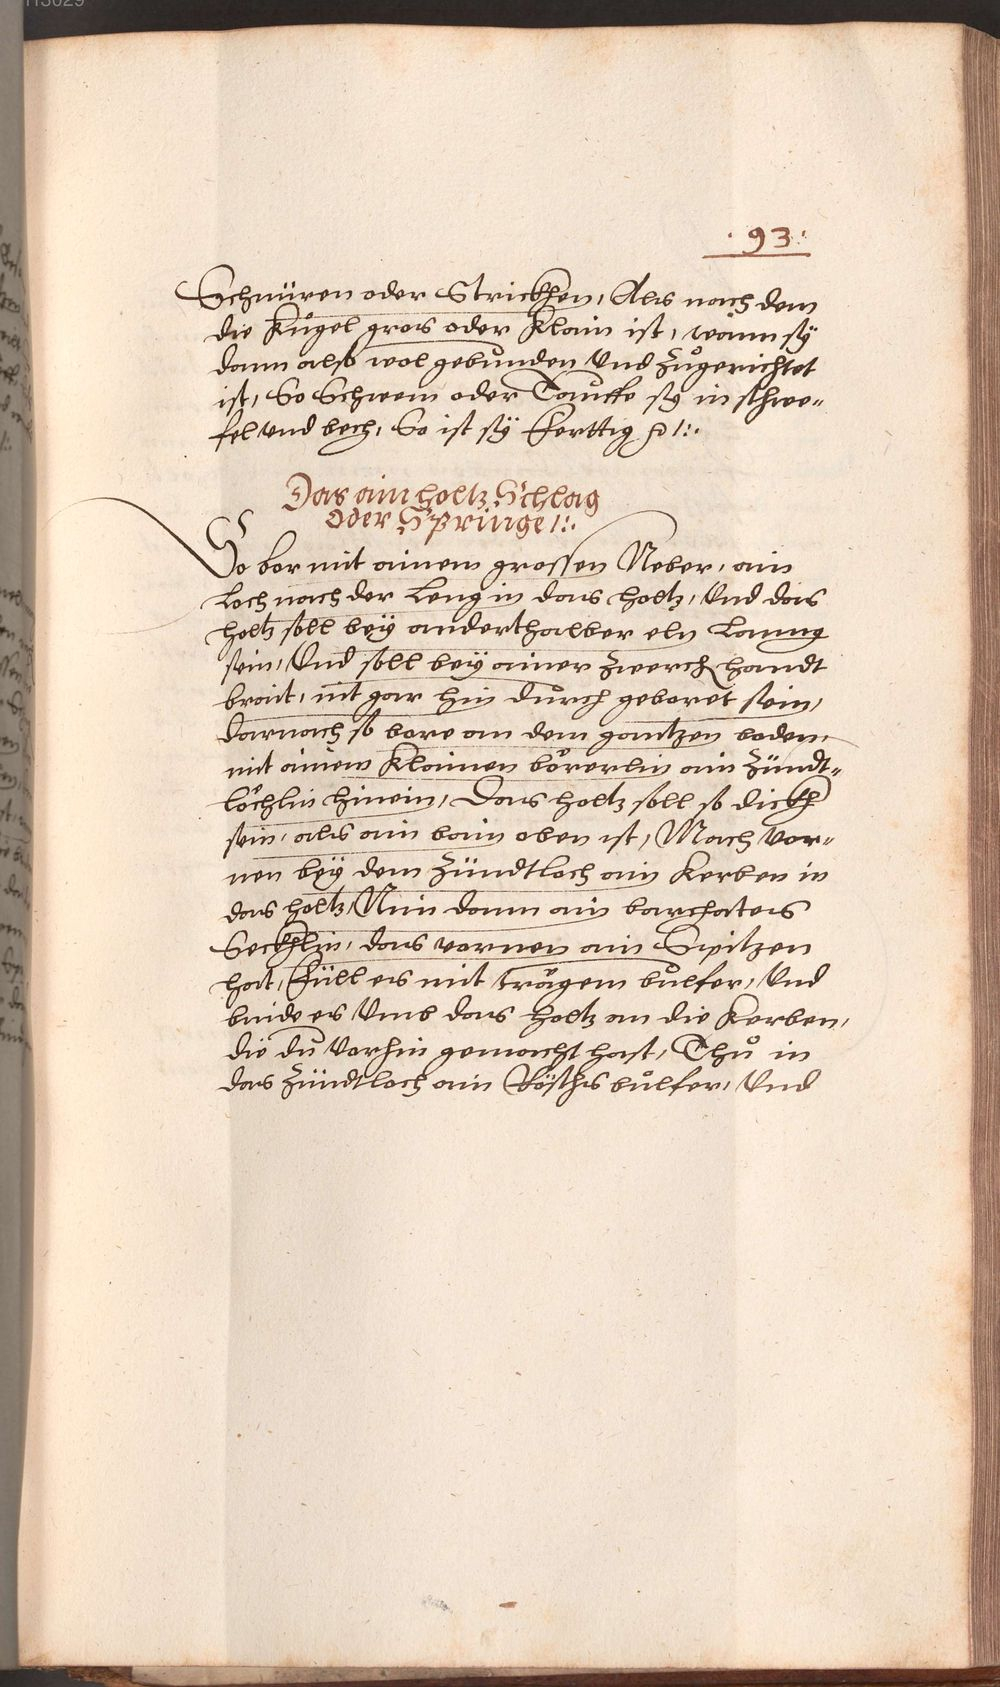 · 93 :
Schnüren oder Strickhen, Als nach dem
die Kůgel gros oder Klain ist, wann sÿ
dann also wol gebůnden Vnd Zůgerichtet
ist, So Schwem oder Tauffe sÿ in schwe=
fel vnd bech, So ist sÿ Ferttig
Das ain holtz Schlag
Oder Springe /:.
So bor mit ainem grossen Neber, ain
Loch nach der Leng in das holtz, Vnd das
holtz soll beÿ anderthalber eln Lanng
sein, Vnd soll beÿ ainer Zwerch handt
brait, nit gar hin důrch geboret sein,
darnach so bore an dem gantzen boden,
mit ainem Klainen börerlin ain Zündt=
löchlin hinein, Das holtz soll so dickh
sein, als ain bain oben ist, Mach vor=
nen beÿ dem Zündtloch ain Kerben in
das holtz, Nim dann ain barchates
Seckhlin, das vornen ain Spitzen
hat, Füll es mit trägem bůlfer, Vnd
binde es Vmb das holtz an die Kerben,
die dů Vorhin gemacht hast, Thů in
das Zündtloch ain Röschs bůlfer, Vnd